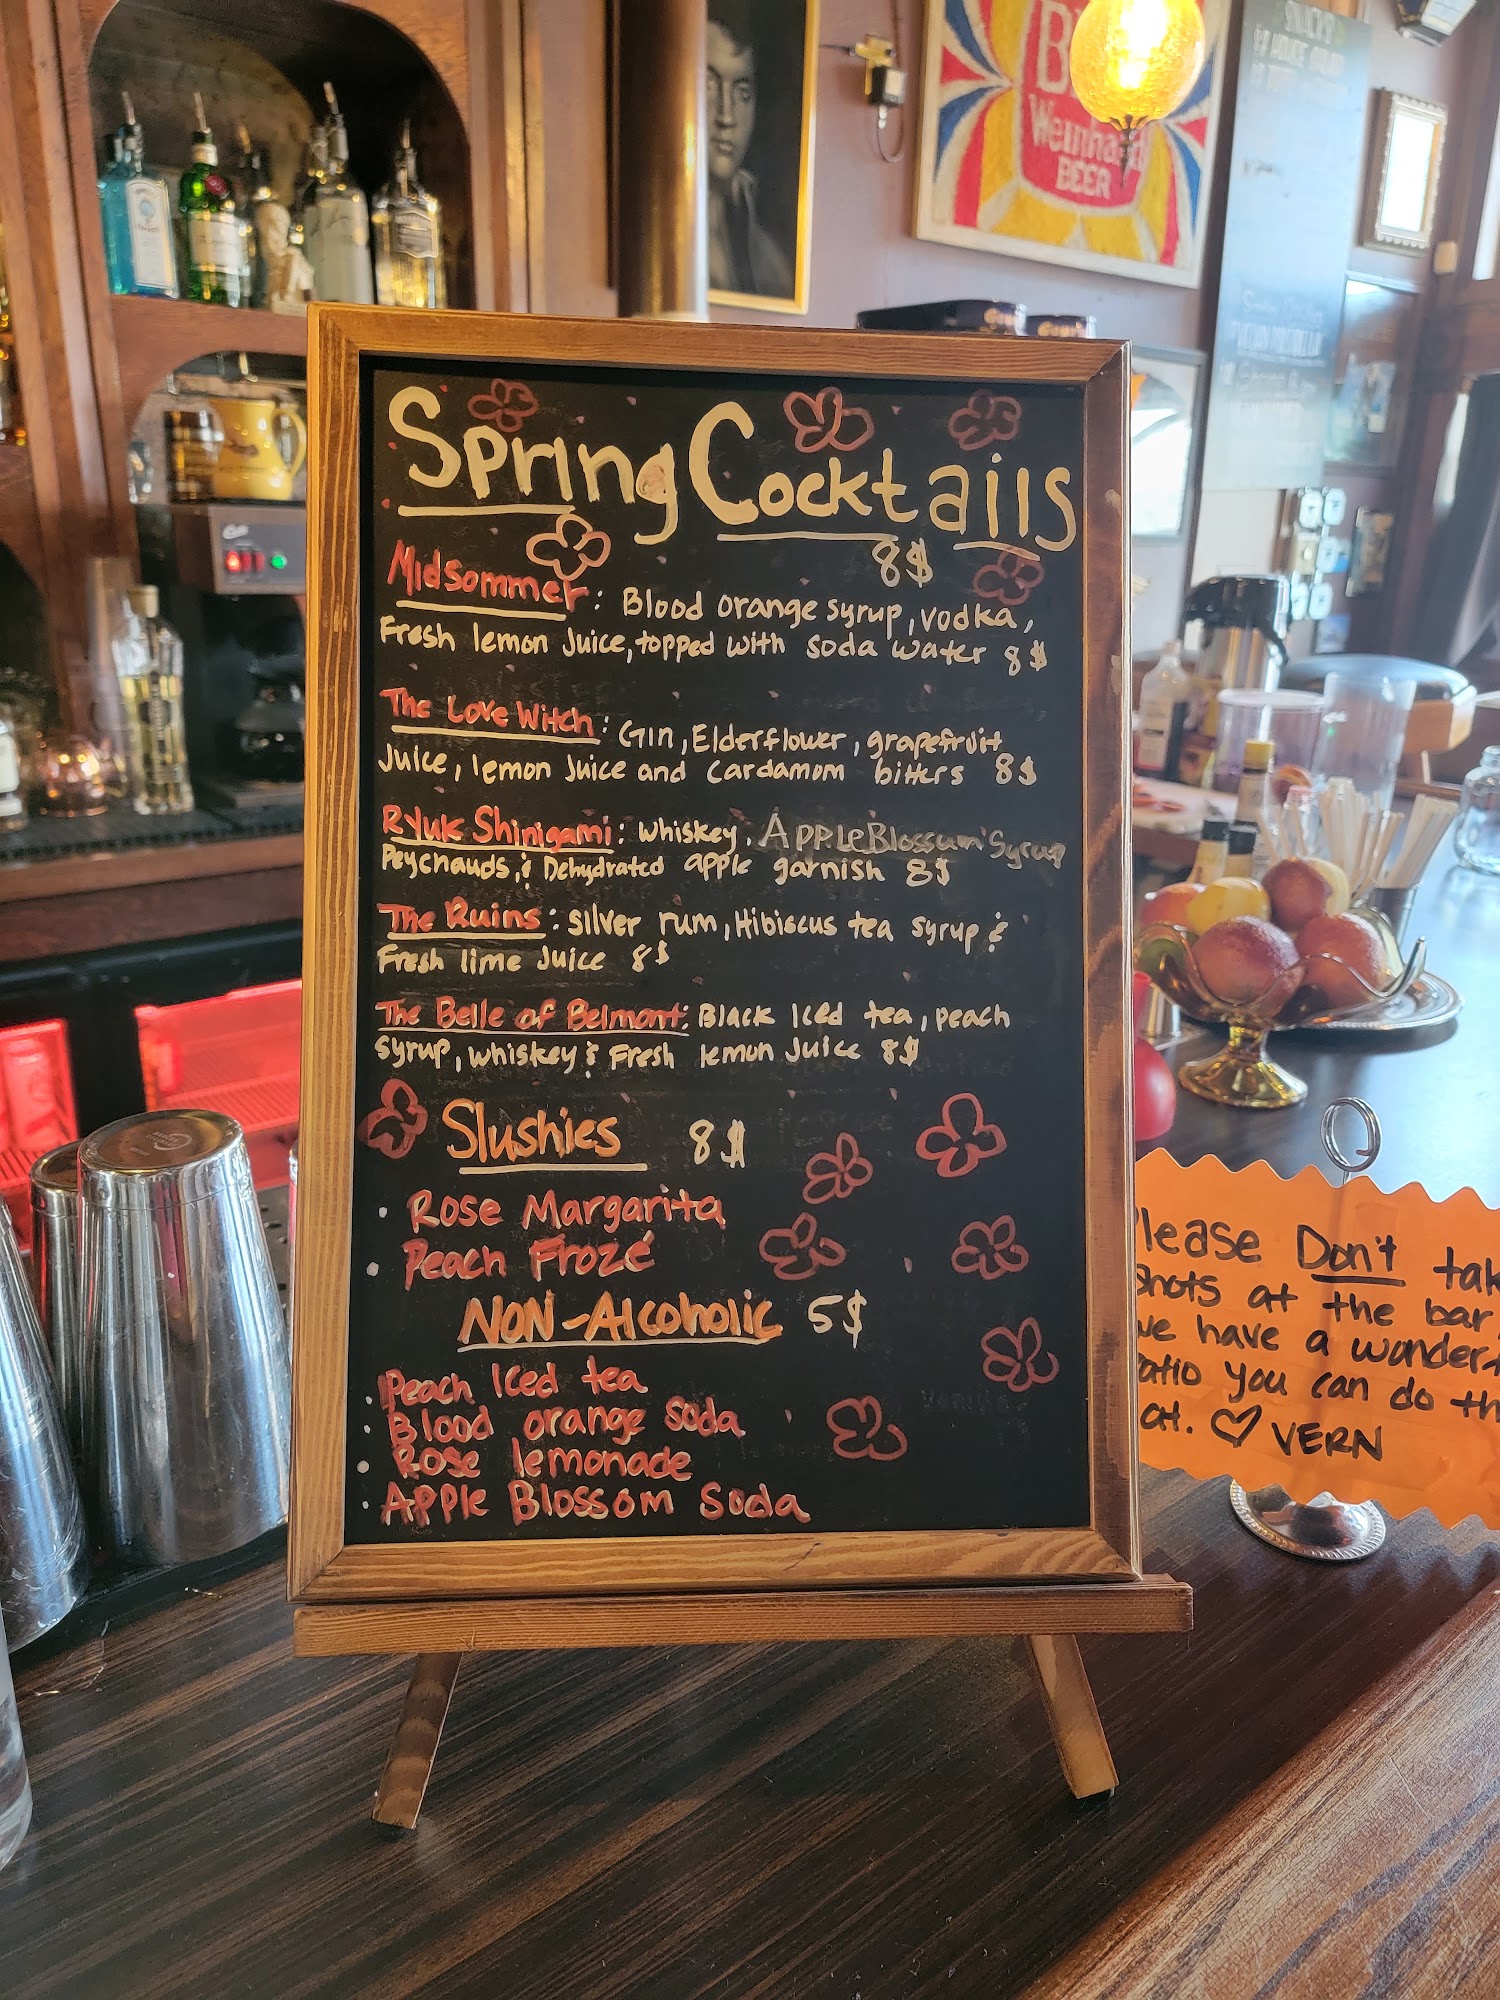 Spring Cocktails
8$
Midsommer: Blood orange syrup, vodka,
Fresh lemon Juice, topped with soda water 8$
The Love Witch: Gin, Elderflower, grapefruit
Juice, lemon Juice and Cardamom bitters 8$
Ryuk Shinigami: whiskey, Apple Blossum Syrup
Peychauds, & Dehydrated apple garnish 8$
The Ruins: Silver rum, Hibiscus tea syrup &
Fresh lime Juice 8$
The Belle of Belmont: Black Iced tea, peach
syrup, whiskey & Fresh lemon Juice 8$
Slushies 8$
• Rose Margarita
• Peach Frozé
Non-Alcoholic 5$
• Peach Iced tea
• Blood orange soda
• Rose lemonade
• Apple Blossom Soda
Please Don't
shots at the bar
we have a
patio you can do
at. ♡ VERN
Weinhard
BEER
SNACKS